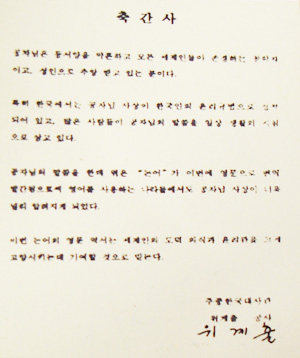 축 간 사
공자님은 동서양을 막론하고 모든 세계인들이 존경하는
이고, 성인으로 추앙 받고 있는 분이다.
특히 한국에서는 공자님 사상이 한국인의 윤리규범으로
되어 있고, 많은 사람들이 공자님의 말씀을 일상 생활의
으로 삼고 있다.
공자님의 말씀을 한데 엮은 "논어"가 이번에 영문으로 번역
발간됨으로써 영어를 사용하는 나라들에서도 공자님 사상이 더욱
널리 알려지게 되었다.
이번 논어의 영문 역서는 세계인의 도덕 의식과 윤리관을 크게
고양시키는데 기여할 것으로 믿는다.
주중한국대사관
위계출 공사
위계출